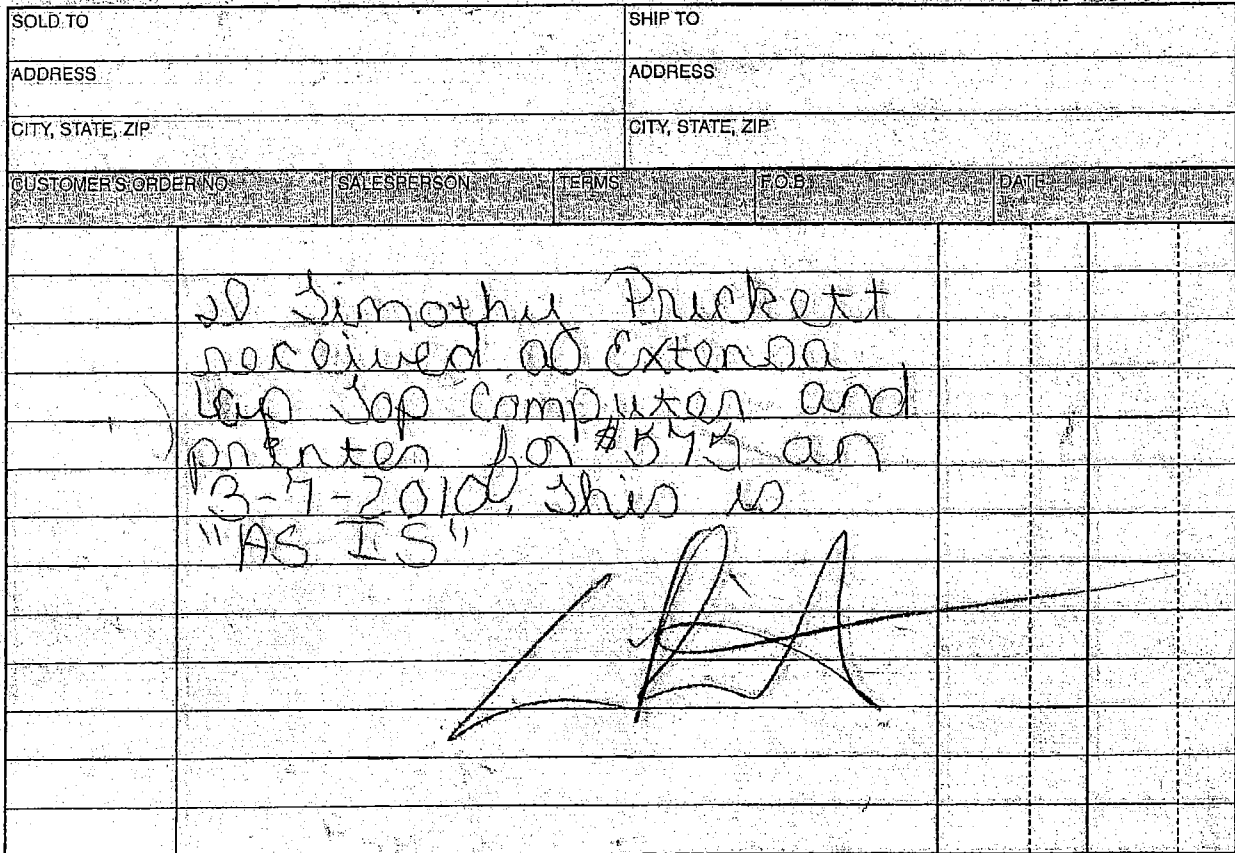 SOLD TO
SHIP TO
ADDRESS
ADDRESS
CITY, STATE, ZIP
CITY, STATE, ZIP
CUSTOMER'S ORDER NO. SALESPERSON TERMS F.O.B. DATE
I Timothy Prickett
received a Extensa
Lap Top Computer and
printer for $575 on
3-7-2010. This is
"AS IS"